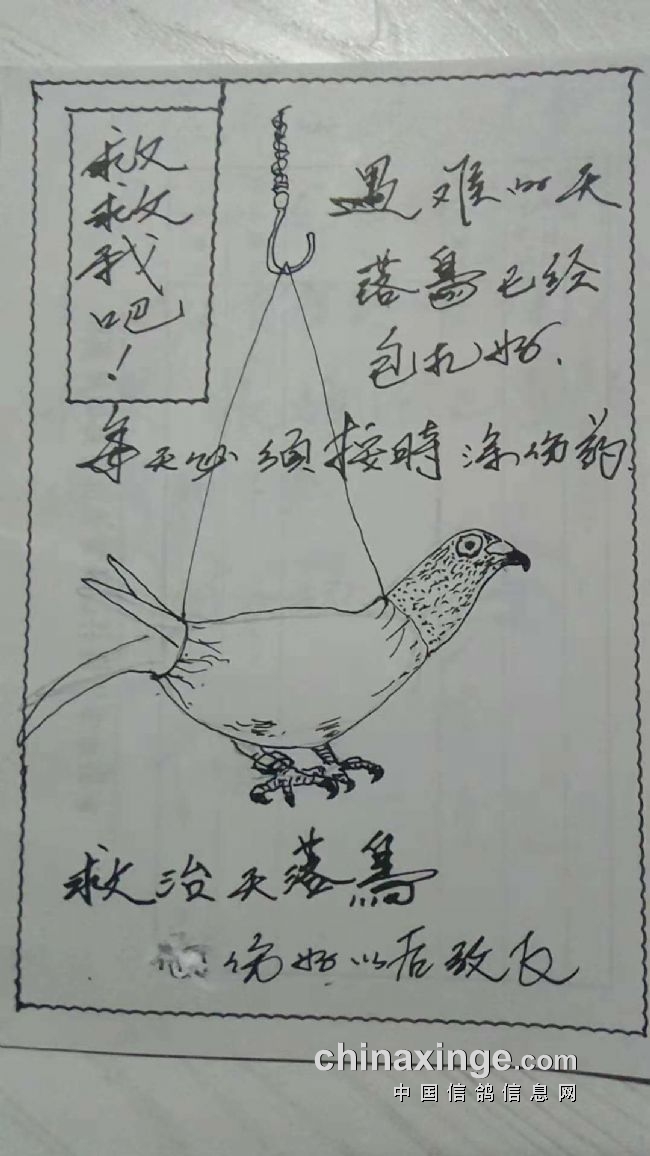 救救我吧！
遇难的天
落鳥已经
包扎好.
每天必须按時涂伤药.
救治天落鳥
伤好以后放飞
chinaxinge.com
中国信鸽信息网